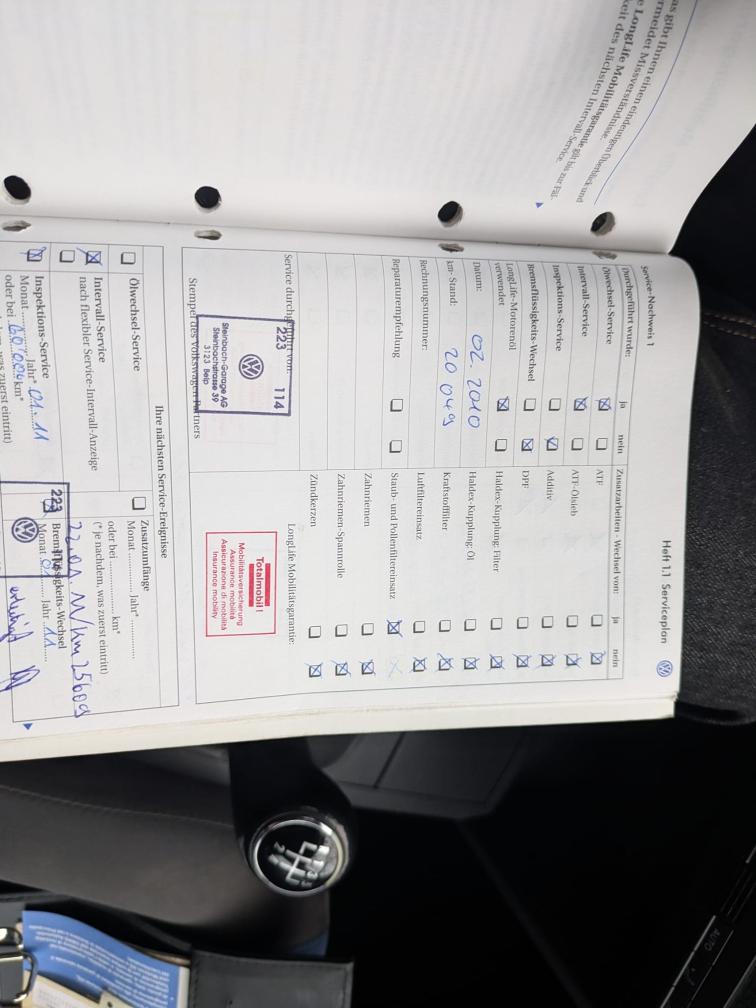 as gibt Ihnen einen eindeutigen Überblick und
rmeidet Missverständnisse.
e LongLife Mobilitätsgarantie gilt bis zur Fäl-
keit des nächsten Intervall-Service.
Heft 1.1 Serviceplan
Service-Nachweis 1
Durchgeführt wurde: ja nein
Ölwechsel-Service
Intervall-Service
Inspektions-Service
Bremsflüssigkeits-Wechsel
LongLife-Motorenöl
verwendet
Datum: 02. 2010
km-Stand: 20 049
Rechnungsnummer:
Reparaturempfehlung
Service durchgeführt von:
223 114
Steinbach-Garage AG
Steinbachstrasse 39
3123 Belp
Stempel des Volkswagen Partners
Zusatzarbeiten - Wechsel von: ja nein
ATF
ATF-Ölsieb
Additiv
DPF
Haldex-Kupplung: Filter
Haldex-Kupplung: Öl
Kraftstofffilter
Luftfiltereinsatz
Staub- und Pollenfiltereinsatz
Zahnriemen
Zahnriemen-Spannrolle
Zündkerzen
LongLife Mobilitätsgarantie:
Totalmobil!
Mobilitätsversicherung
Assurance mobilité
Assicurazione di mobilità
Insurance mobility
Ihre nächsten Service-Ereignisse
Ölwechsel-Service
Intervall-Service
nach flexibler Service-Intervall-Anzeige
Inspektions-Service
Monat Jahr* 01.11
oder bei 60'000 km*
was zuerst eintritt)
Zusatzumfänge
Monat Jahr*
oder bei km*
(* je nachdem, was zuerst eintritt)
22.01.11/km 25609
223
Bremsflüssigkeits-Wechsel
Monat Jahr 11
erledigt
5
AUTO